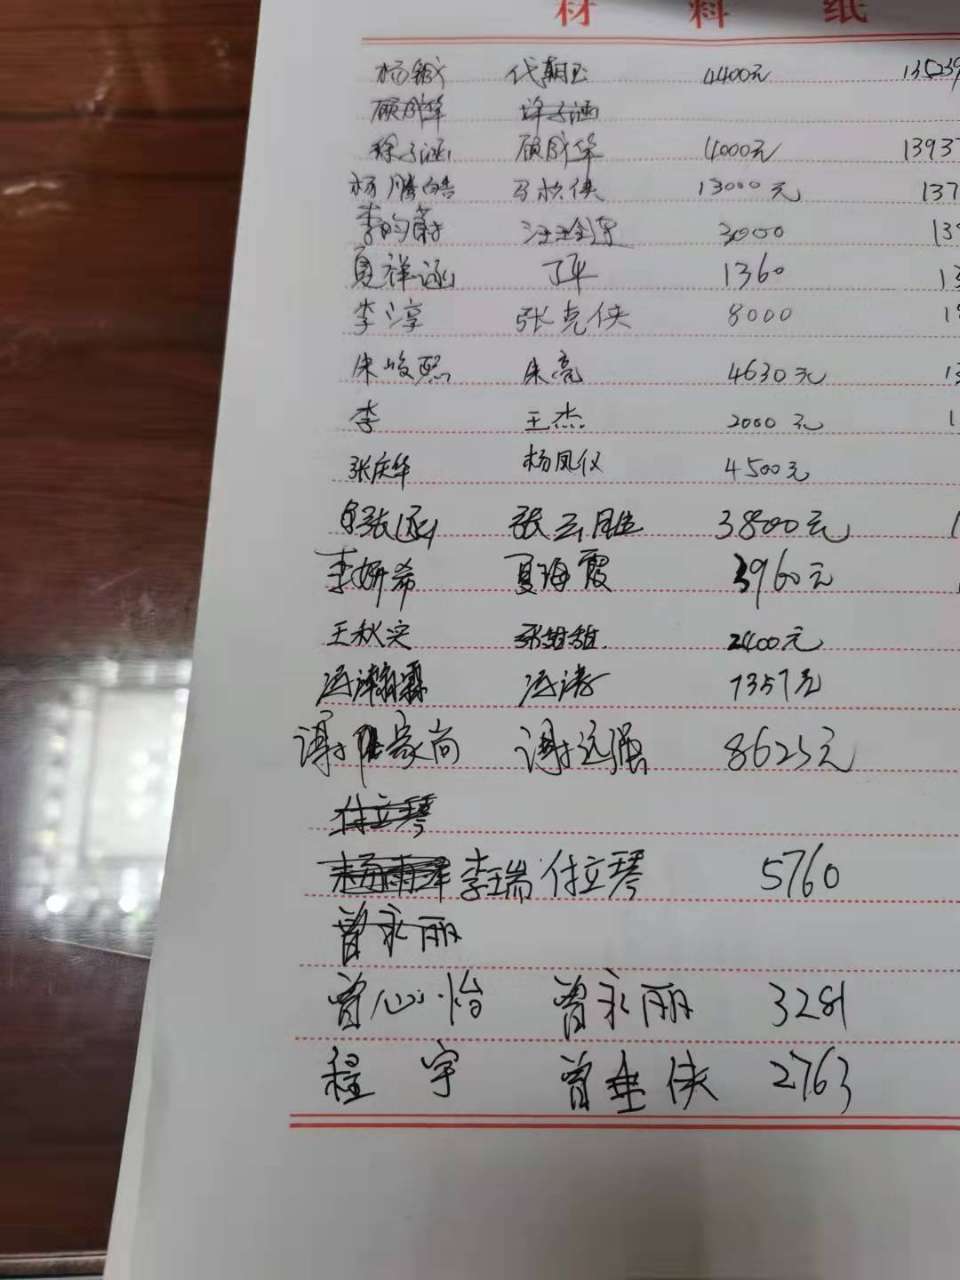 材 料 纸
杨 代朝 4400元 135239
顾成华 徐子涵
徐子涵 顾成华 4000元 1393
杨腾皓 马秋侠 13000元 137
李昀蔚 汪 3000 13
夏祥涵 丁华 1360 13
李淳 张克侠 8000 1
朱峻熙 朱亮 4630元 13
李 王杰 2000元 1
张庆华 杨凤仪 4500元
张涵 张云胜 3800元 1
李妍希 夏海霞 3960元
王秋实 张甜甜 2400元
冯瀚霖 冯涛 7357元
谢家尚 谢远强 8625元
付立琴
杨雨泽 李瑞 付立琴 5760
曾永丽
曾心怡 曾永丽 3281
程宇 曾垂侠 2763